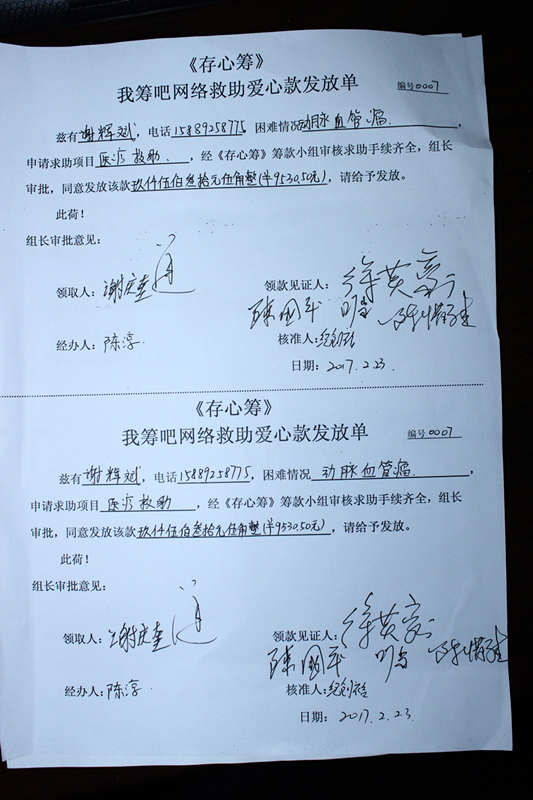 《存心筹》
我筹吧网络救助爱心款发放单
编号0007
兹有谢辉斌，电话15889258775，困难情况动脉血管瘤，
申请求助项目医疗救助，经《存心筹》筹款小组审核求助手续齐全，组长
审批，同意发放该款玖仟伍佰叁拾元伍角整(¥9530.50元)，请给予发放。
此荷！
组长审批意见：
领取人：谢庆奎 领款见证人：徐英豪
陈国平
经办人：陈淳 核准人：
日期：2017.2.23.
《存心筹》
我筹吧网络救助爱心款发放单
编号0007
兹有谢辉斌，电话15889258775，困难情况动脉血管瘤，
申请求助项目医疗救助，经《存心筹》筹款小组审核求助手续齐全，组长
审批，同意发放该款玖仟伍佰叁拾元伍角整(¥9530.50元)，请给予发放。
此荷！
组长审批意见：
领取人：谢庆奎 领款见证人：徐英豪
陈国平
经办人：陈淳 核准人：
日期：2017.2.23